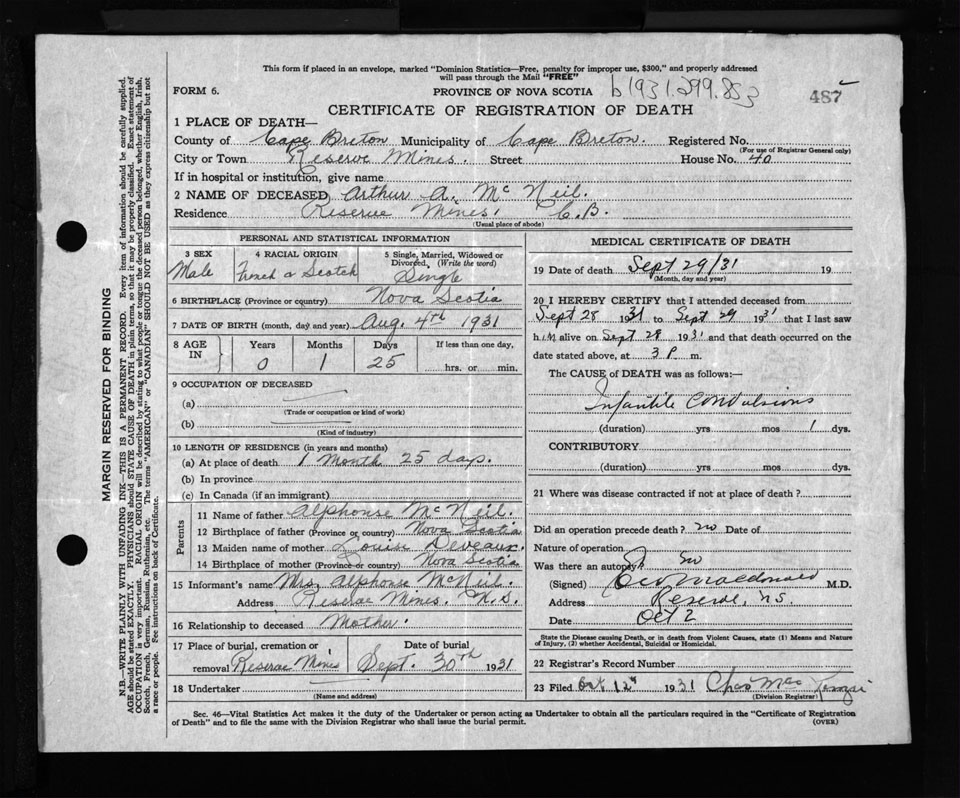 This form if placed in an envelope, marked "Dominion Statistics—Free, penalty for improper use, $300," and properly addressed
will pass through the Mail "FREE"
FORM 6. PROVINCE OF NOVA SCOTIA b1931.299.853 487
CERTIFICATE OF REGISTRATION OF DEATH
1 PLACE OF DEATH—
County of Cape Breton Municipality of Cape Breton. Registered No.
(For use of Registrar General only)
City or Town Reserve Mines. Street House No. 40
If in hospital or institution, give name
2 NAME OF DECEASED Arthur A. McNeil.
Residence Reserve Mines. C.B.
(Usual place of abode)
PERSONAL AND STATISTICAL INFORMATION
3 SEX 4 RACIAL ORIGIN 5 Single, Married, Widowed or
Divorced, (Write the word)
Male French & Scotch Single
6 BIRTHPLACE (Province or country) Nova Scotia
7 DATE OF BIRTH (month, day and year) Aug. 4th 1931
8 AGE IN Years Months Days If less than one day,
0 1 25 hrs. or min.
9 OCCUPATION OF DECEASED
(a)
(Trade or occupation or kind of work)
(b)
(Kind of industry)
10 LENGTH OF RESIDENCE (in years and months)
(a) At place of death 1 Month 25 days.
(b) In province
(c) In Canada (if an immigrant)
Parents
11 Name of father Alphonse McNeil.
12 Birthplace of father (Province or country) Nova Scotia
13 Maiden name of mother Louise Deveaux.
14 Birthplace of mother (Province or country) Nova Scotia
15 Informant's name Mrs. Alphonse McNeil.
Address Reserve Mines. N.S.
16 Relationship to deceased Mother.
17 Place of burial, cremation or Date of burial
removal Reserve Mines Sept. 30th 1931
18 Undertaker
(Name and address)
MEDICAL CERTIFICATE OF DEATH
19 Date of death Sept 29/31 19
(Month, day and year)
20 I HEREBY CERTIFY that I attended deceased from
Sept 28 1931 to Sept 29 1931 that I last saw
him alive on Sept 28 1931 and that death occurred on the
date stated above, at 3 P. m.
The CAUSE of DEATH was as follows:—
Infantile Convulsions
(duration) yrs mos 1 dys.
CONTRIBUTORY
(duration) yrs mos dys.
21 Where was disease contracted if not at place of death?
Did an operation precede death? no Date of
Nature of operation
Was there an autopsy? no
(Signed) Macdonald M.D.
Address Reserve, N.S.
Date Oct 2
State the Disease causing Death, or in death from Violent Causes, state (1) Means and Nature
of Injury, (2) whether Accidental, Suicidal or Homicidal.
22 Registrar's Record Number
23 Filed Oct 12th 1931 Chas MacKenzie
(Division Registrar)
Sec. 46—Vital Statistics Act makes it the duty of the Undertaker or person acting as Undertaker to obtain all the particulars required in the "Certificate of Registration
of Death" and to file the same with the Division Registrar who shall issue the burial permit. (OVER)
MARGIN RESERVED FOR BINDING
N.B.—WRITE PLAINLY WITH UNFADING INK—THIS IS A PERMANENT RECORD. Every item of information should be carefully supplied.
AGE should be stated EXACTLY. PHYSICIANS should STATE CAUSE OF DEATH in plain terms, so that it may be properly classified. Exact statement of
OCCUPATION is very important. RACIAL ORIGIN will be described by stating to what people or tongue the deceased person belonged, whether English, Irish,
Scotch, French, German, Russian, Ruthenian, etc. The terms "AMERICAN" or "CANADIAN" SHOULD NOT BE USED as they express citizenship but not
a race or people. See instructions on back of Certificate.